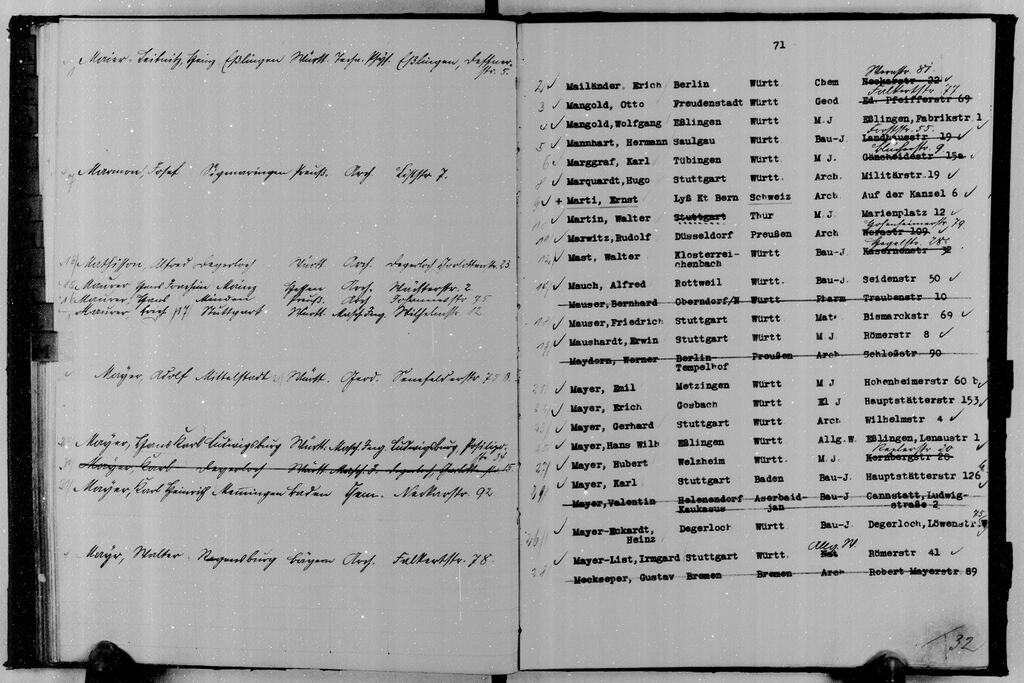 Maier-Leibnitz, Heinz Eßlingen Württ. Techn. Phys. Eßlingen,
str. 5.
Marmon, Josef Sigmaringen Preuß. Arch.
Mathisson, Alfred Degerloch Württ. Arch. Degerloch 23.
Maurer Hans Joachim Mainz Hessen Arch. 2
Maurer, Hans Minden Preuß. Arch Johannesstr 75
Maurer Erich Stuttgart Württ. Masch. Ing. Wilhelmstr. 12
Mayer, Adolf Mittelstadt Württ. Geod. Senefelderstr. 75 B.
Mayer, Hans Karl Ludwigsburg Württ. Masch. Ing. Ludwigsburg,
Mayer, Karl Degerloch Württ Masch. J. Degerloch,
Mayer, Karl Heinrich Memmingen Baden Chem. Neckarstr. 92
Mayr, Walter Regensburg Bayern Arch. Falkertstr. 78.
71
Wernstr. 81
2 Mailänder, Erich Berlin Württ Chem Neckarstr 22
Falkertstr. 77
3 Mangold, Otto Freudenstadt Württ Geod Ed. Pfeifferstr 69
Mangold, Wolfgang Eßlingen Württ M.J Eßlingen, Fabrikstr 1
Forststr. 55.
5 Mannhart, Hermann Saulgau Württ Bau-J. Landhausstr 19
6 Marggraf, Karl Tübingen Württ M.J. Gänsheidestr 15a
8 Marquardt, Hugo Stuttgart Württ Arch. Militärstr. 19
9 + Marti, Ernst Lyß Kt Bern Schweiz Arch. Auf der Kanzel 6
Martin, Walter Stuttgart Thür M.J. Marienplatz 12
Hohenheimerstr. 79
Marwitz, Rudolf Düsseldorf Preußen Arch Werastr 109
Mast, Walter Klosterrei- Württ Bau-J Kasernenstr 32
chenbach
Mauch, Alfred Rottweil Württ Bau-J. Seidenstr 50
Mauser, Bernhard Oberndorf/N Württ Pharm Traubenstr 10
Mauser, Friedrich Stuttgart Württ Mat. Bismarckstr 69
Maushardt, Erwin Stuttgart Württ M.J. Römerstr 8
Maydorn, Werner Berlin- Preußen Arch Schloßstr 90
Tempelhof
Mayer, Emil Metzingen Württ M J Hohenheimerstr 60 b
Mayer, Erich Gosbach Württ El J Hauptstätterstr 153
Mayer, Gerhard Stuttgart Württ Arch Wilhelmstr 4
Mayer, Hans Wilh Eßlingen Württ Allg. W. Eßlingen, Lenaustr 1
Keplerstr 20
27 Mayer, Hubert Welzheim Württ M.J. Kornbergstr 26
Mayer, Karl Stuttgart Baden Bau-J. Hauptstätterstr 126
Mayer, Valentin Helenendorf Aserbaid- Bau-J Cannstatt, Ludwig-
Kaukasus jan straße 2
75
Mayer-Eckardt, Degerloch Württ Bau-J. Degerloch, Löwenstr
Heinz
Mayer-List, Irmgard Stuttgart Württ. Nat Römerstr 41
Meckseper, Gustav Bremen Bremen Arch Robert Mayerstr 89
32